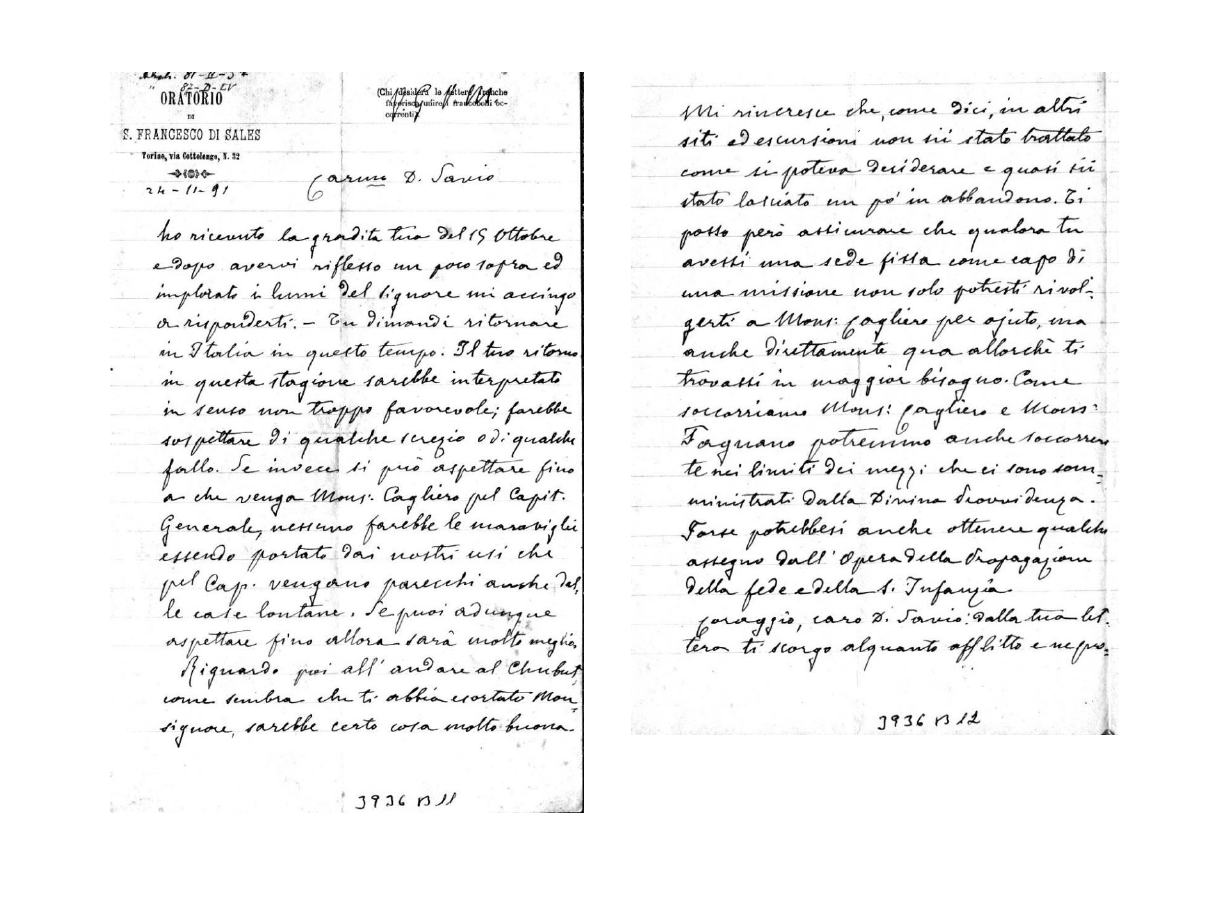 ORATORIO
DI
S. FRANCESCO DI SALES
Torino, via Cottolengo, N. 32
24-11-91
(Chi desidera le lettere
correnti).
Carmo D. Savio
ho ricevuto la gradita tua del 15 Ottobre
e dopo avervi riflesso un poco sopra ed
implorato i lumi del Signore mi accingo
a risponderti. - Tu dimandi ritornare
in Italia in questo tempo. Il tuo ritorno
in questa stagione sarebbe interpretato
in senso non troppo favorevole; farebbe
sospettare di qualche screzio o di qualche
fallo. Se invece si può aspettare fino
a che venga Mons: Cagliero pel Capit.
Generale, nessuno farebbe le maraviglie
essendo portato dai nostri usi che
pel Cap. vengano parecchi anche dal,
le case lontane. Se puoi adunque
aspettare fino allora sarà molto meglio.
Riguardo poi all' andare al Chubut,
come sembra che ti abbia esortato Mon,
signore, sarebbe certo cosa molto buona.
3936 B 11
Mi rincresce che, come dici, in altri
siti ed escursioni non sii stato trattato
come si poteva desiderare e quasi sii
stato lasciato un po' in abbandono. Ti
posso però assicurare che qualora tu
avessi una sede fissa come capo di
una missione non solo potresti rivol-
gerti a Mons: Cagliero per ajuto, ma
anche direttamente qua allorchè ti
trovassi in maggior bisogno. Come
soccorriamo Mons: Cagliero e Mons:
Fagnano potremmo anche soccorrere
te nei limiti dei mezzi che ci sono som,
ministrati dalla Divina Provvidenza.
Forse potrebbesi anche ottenere qualche
assegno dall' Opera della Propagazione
della fede e della S. Infanzia
Coraggio, caro D. Savio: dalla tua let-
tera ti scorgo alquanto afflitto e ne pro-
3936 B 12